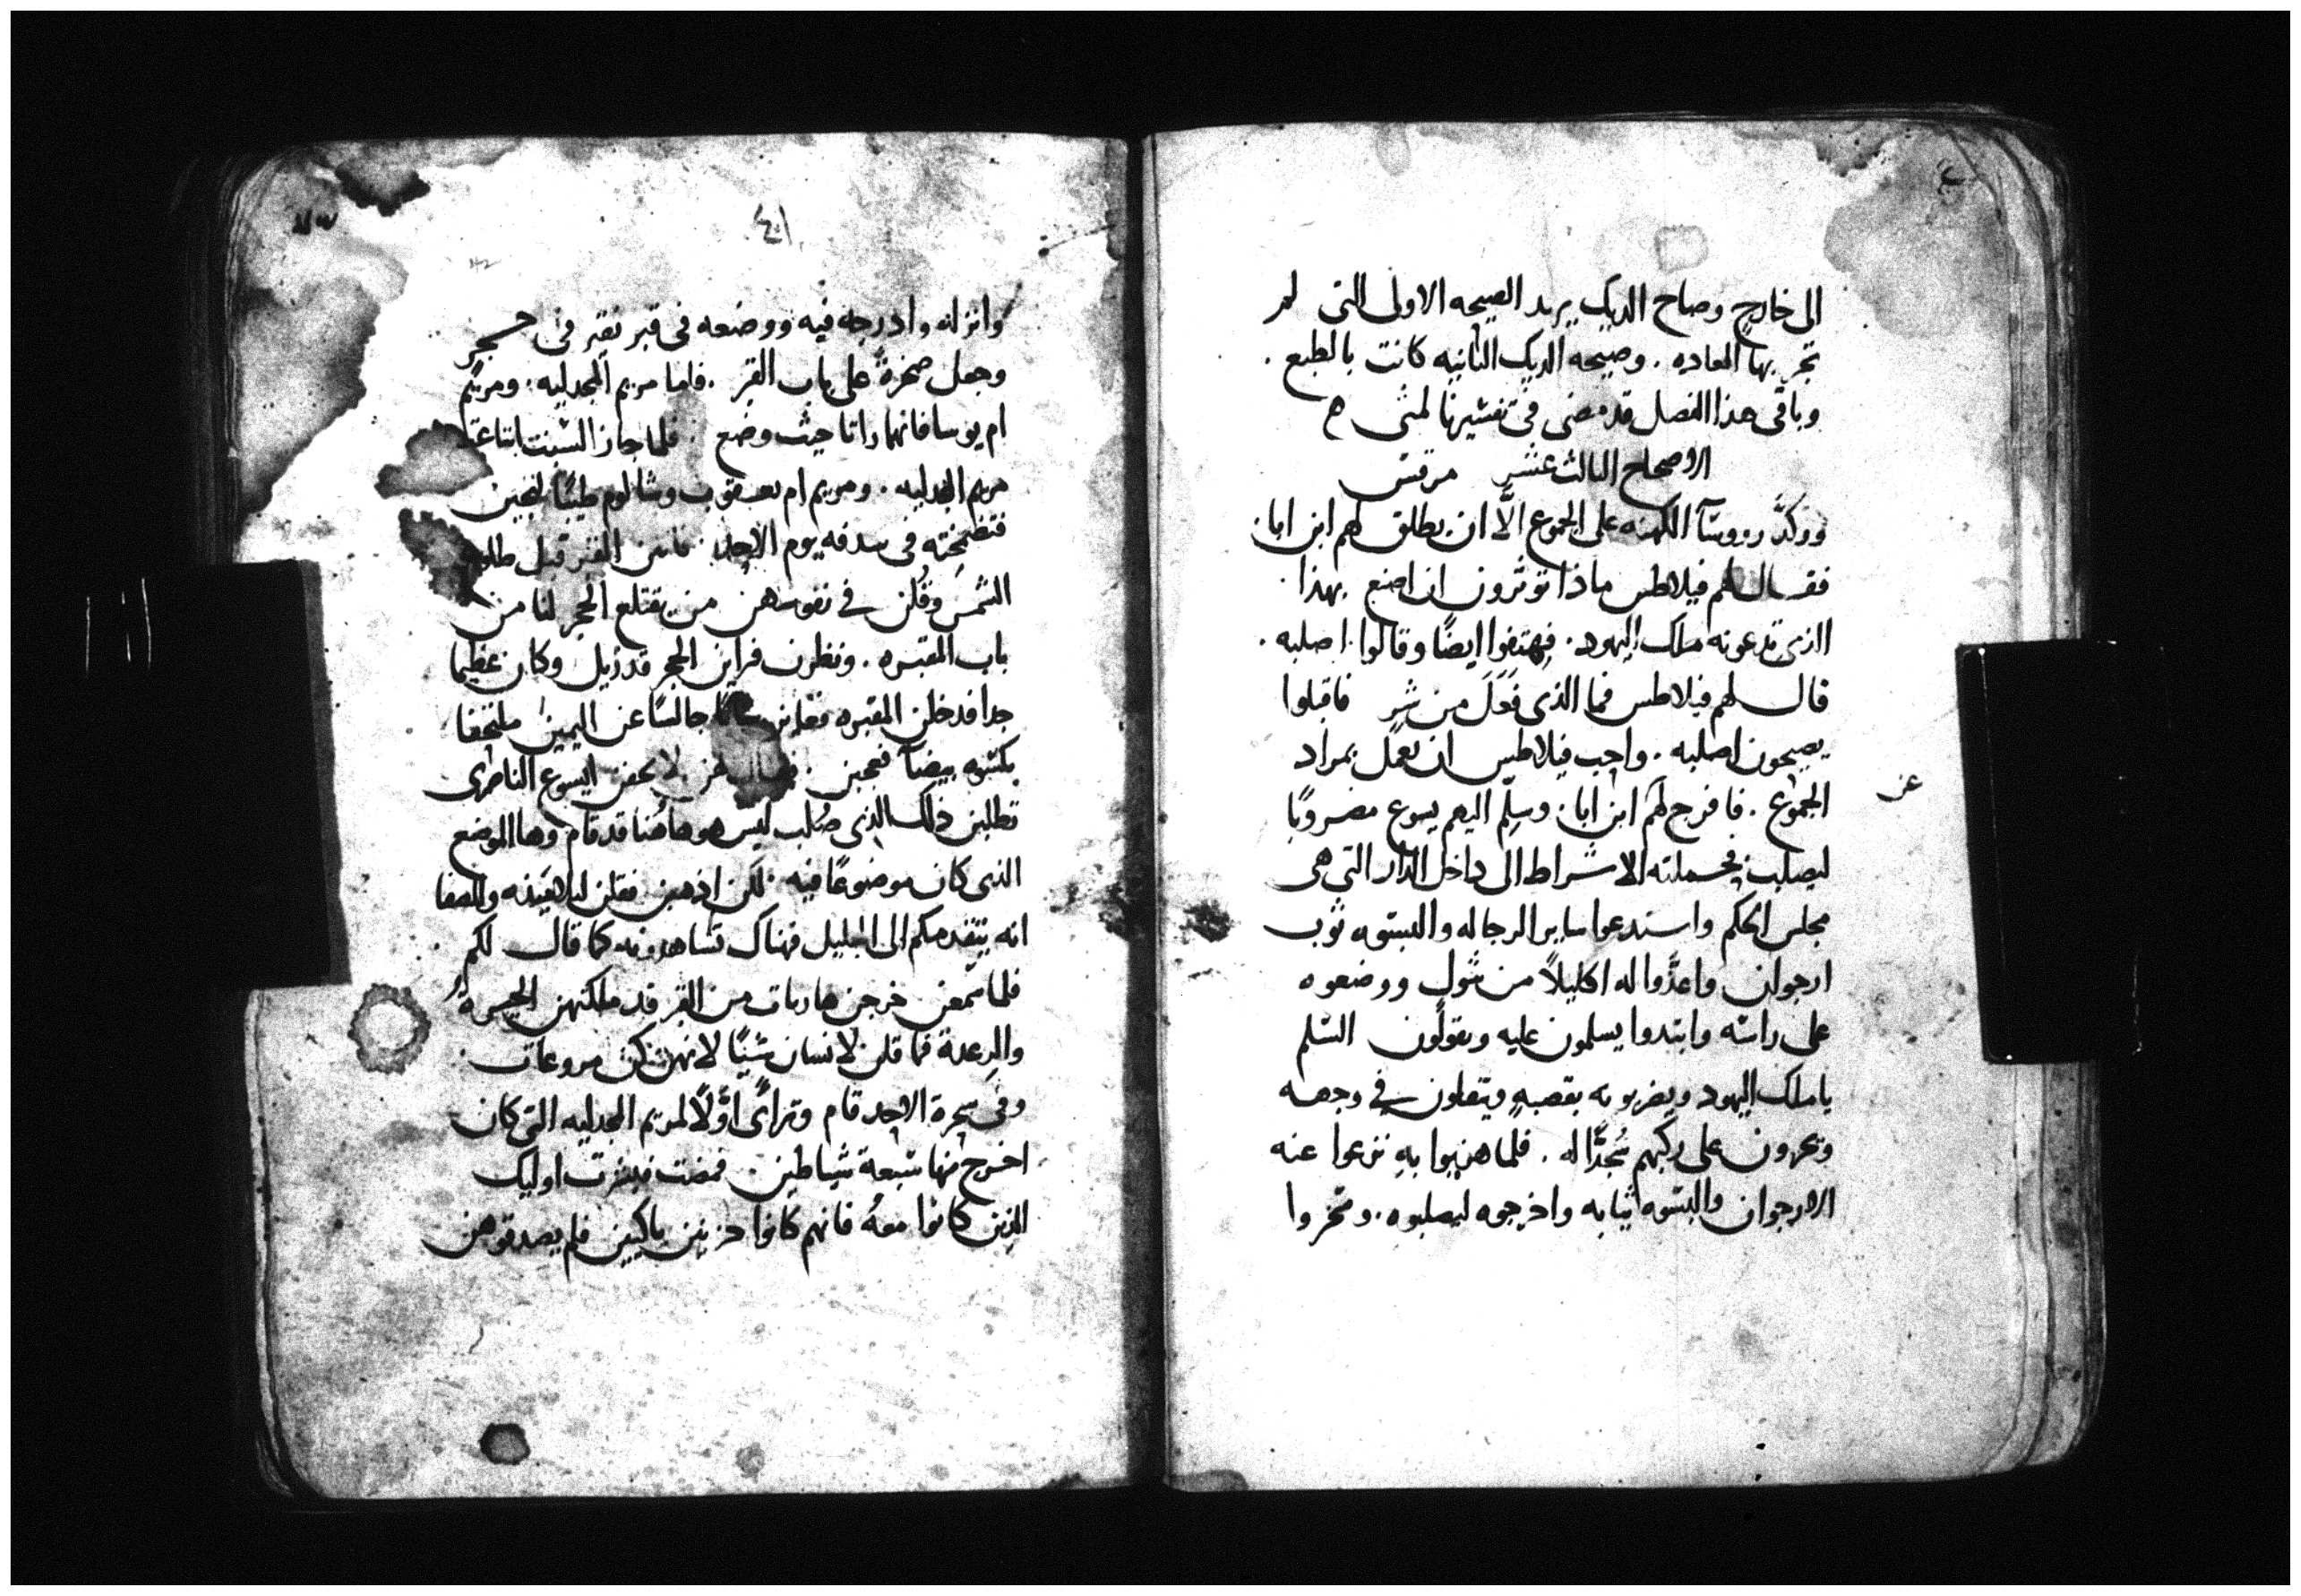 الى خارج وصاح الديك يريد الصيحه الاولى التى لم
تجر بها العاده. وصيحه الديك الثانيه كانت بالطبع.
وباقى هذا الفصل قد مضى فى تفسيرنا لمتى
الاصحاح الثالث عشر مرقس
ووكد رووسا الكهنه على الجموع الّا ان يطلق لهم ابن ابان
فقال لهم فيلاطس ماذا توثرون ان اصنع بهذا
الذى تدعونه ملك اليهود. فهتفوا ايضًا وقالوا اصلبه.
قال لهم فيلاطس فما الذى فَعَلَ من شرٍ فاقبلوا
يصيحون اصلبه. واحب فيلاطس ان يعمل بمراد
الجموع. فافرج لهم ابن ابان وسلّم اليهم يسوع مضروبًا
ليصلب فحملته الاشراط الى داخل الدار التى هى
مجلس الحكم واستدعوا ساير الرجاله والبسوه ثوب
ارجوان واعدّوا له اكليلاً من شوك ووضعوه
على راسه وابتدوا يسلمون عليه ويقولون السلم
يا ملك اليهود ويضربونه بقصبهٍ ويتفلون فى وجهه
ويخرون على ركبهم سُجّدًا له. فلما هزيوا به نزعوا عنه
الارجوان والبسوه ثيابه واخرجوه ليصلبوه. وسخروا
عز
٤١
وانزله وادرجه فيه ووضعه فى قبر نقير فى حجر
وجعل صخرةً على باب القبر. فاما مريم المجدليه. ومريم
ام يوسا فانهما راتا حيث وضع. فلما جاز السبت ابتاعت
مريم المجدليه. ومريم ام يعقوب وشالوم طيبًا ليجين
فتضمخنه فى سدفه يوم الاحد. فاتين القبر قبل طلوع
الشمس وقُلن فى نفوسهن من يقتلع الحجر لنا من
باب المقبره. ونظرن فراين الحجر قد زيل وكان عظيما
جدا فدخلن المقبره فعاين شابًا جالسًا عن اليمين ملتحفا
بكسوه بيضآ فعجبن. فقال لهن لا تخفن ايسوع الناصرى
تطلبن ذلك الذى صُلب ليس هو هاهُنا قد قام وها الموضع
الذى كان موضوعًا فيه. لكن اذهبن فقلن لتلاميذه والصفا
انه يتقدمكم الى الجليل فهناك تشاهدونه كما قال لكم
فلما سمعن خرجن هاربات من القبر قد ملكتهن الحيرة
والرِعدة فما قلن لانسان شيًا لانهن كن مروعات
وفى سحرة الاحد قام وتراآى اوّلًا لمريم المجدليه التى كان
اخرج منها سبعة شياطين. فمضت فبشرت اوليك
الذين كانوا معهُ فانهم كانوا حزينين باكيين فلم يصدقوهن